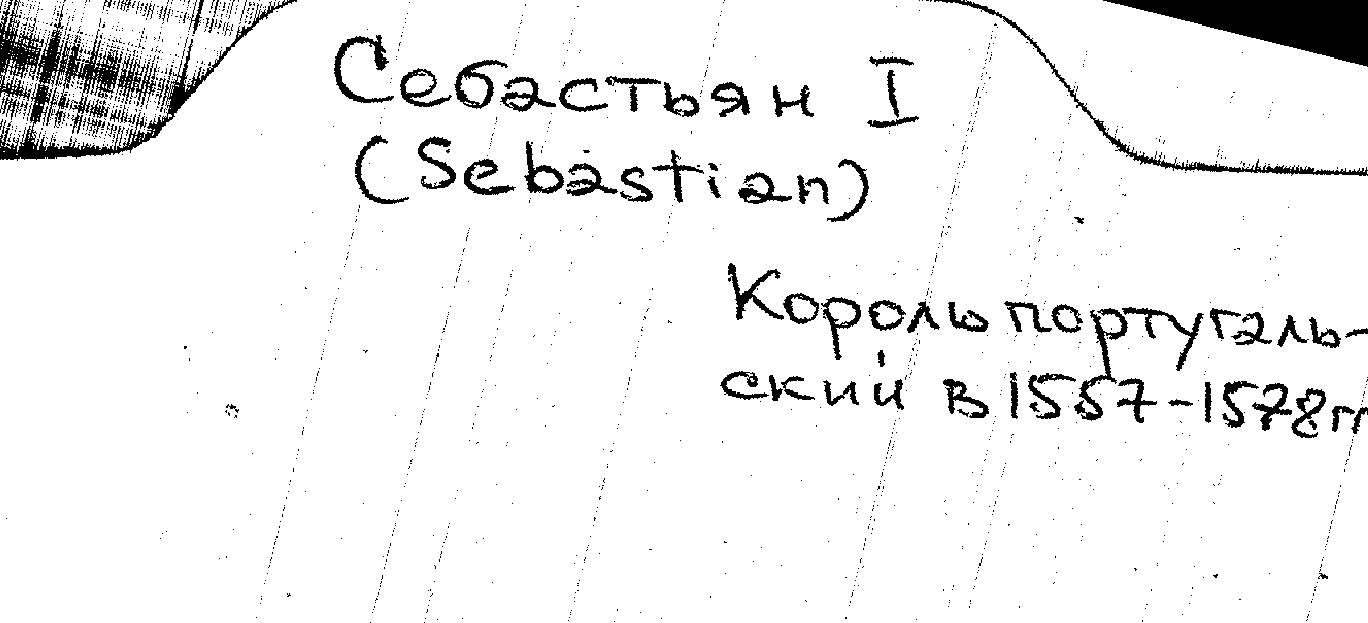 Себастьян I
(Sebastian)
Король португаль-
ский в 1557-1578гг